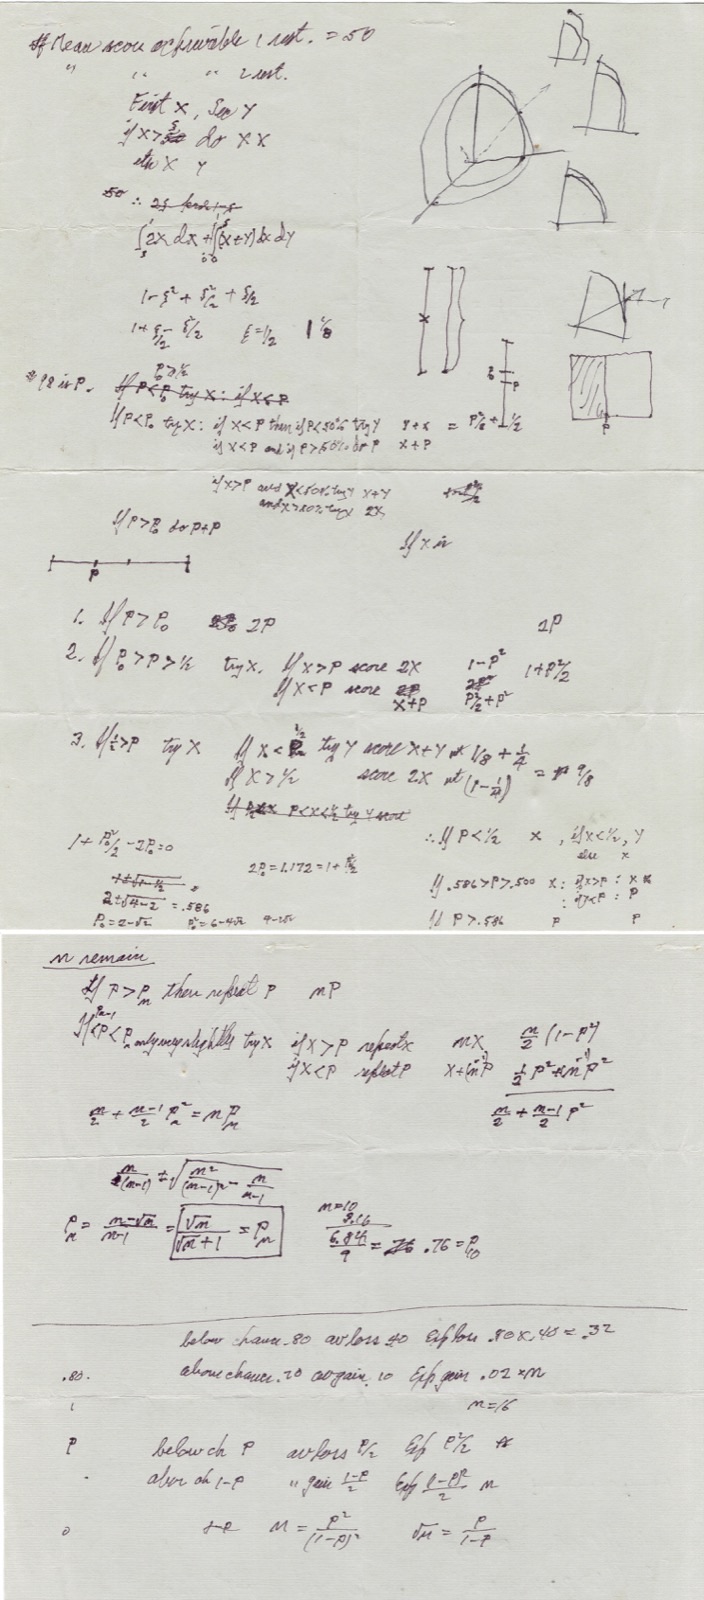 If Mean score achievable 1 rest. = 50
" " " 2 rest.
First X, Sec Y
if X > ξ do X X
X Y
∴
∫2X dX + ∫∫(X+Y) dX dY
1 - ξ² + ξ²/2 + ξ/2
1 + ξ/2 - ξ²/2 ξ = 1/2 1 1/8
is P. If P < P₀ try X : if X < P
If P < P₀ try X : if X < P then if P < 50% try Y = P²/2 + 1/2
if X < P and if P > 50% do P X + P
if X > P and X < 50% try Y X+Y
and X > 50% try X 2X
If P > P₀ do P + P
If X is
P
1. If P > P₀ 2P 2P
2. If P₀ > P > 1/2 try X. If X > P score 2X 1-P² 1+P²/2
If X < P score 2P
X+P P²/2 + P²
3. If 1/2 > P try X If X < 1/2 try Y score X+Y 1/8 + 1/4
If X > 1/2 score 2X (1 - 1/4) = 9/8
If P < X < 1/2 try Y score
1 + P₀²/2 - 2P₀ = 0
∴ If P < 1/2 X , if X < 1/2, Y
else X
2P₀ = 1.172 = 1 +
2 ± √4-2 = .586
If .586 > P > .500 X : if X > P : X
: if X < P : P
P₀ = 2-√2 P₀² = 6-4√2
If P > .586 P P
n remain
If P > Pₙ then repeat P nP
If Pₙ₋₁ < P < Pₙ only very slightly try X if X > P repeat X nX n/2 (1-P²)
if X < P repeat P X+(n-1)P 1/2 P² + (n-1)P²
n/2 + n-1/2 Pₙ² = n Pₙ
n/2 + n-1/2 P²
n/(n-1) ± √n²/(n-1)² - n/n-1
Pₙ = n-√n/n-1 = √n/√n+1 = Pₙ
n=10
3.16
6.84/9 = .76 = P₁₀
below chance .80 av loss .40 Exp loss .80 X .40 = .32
.80. above chance .20 av gain .10 Exp gain .02 × n
1 n=16
P below ch P av loss P/2 Exp P²/2
abov ch 1-P " gain 1-P/2 Exp (1-P)²/2 n
0 n = P²/(1-P)² √n = P/1-P